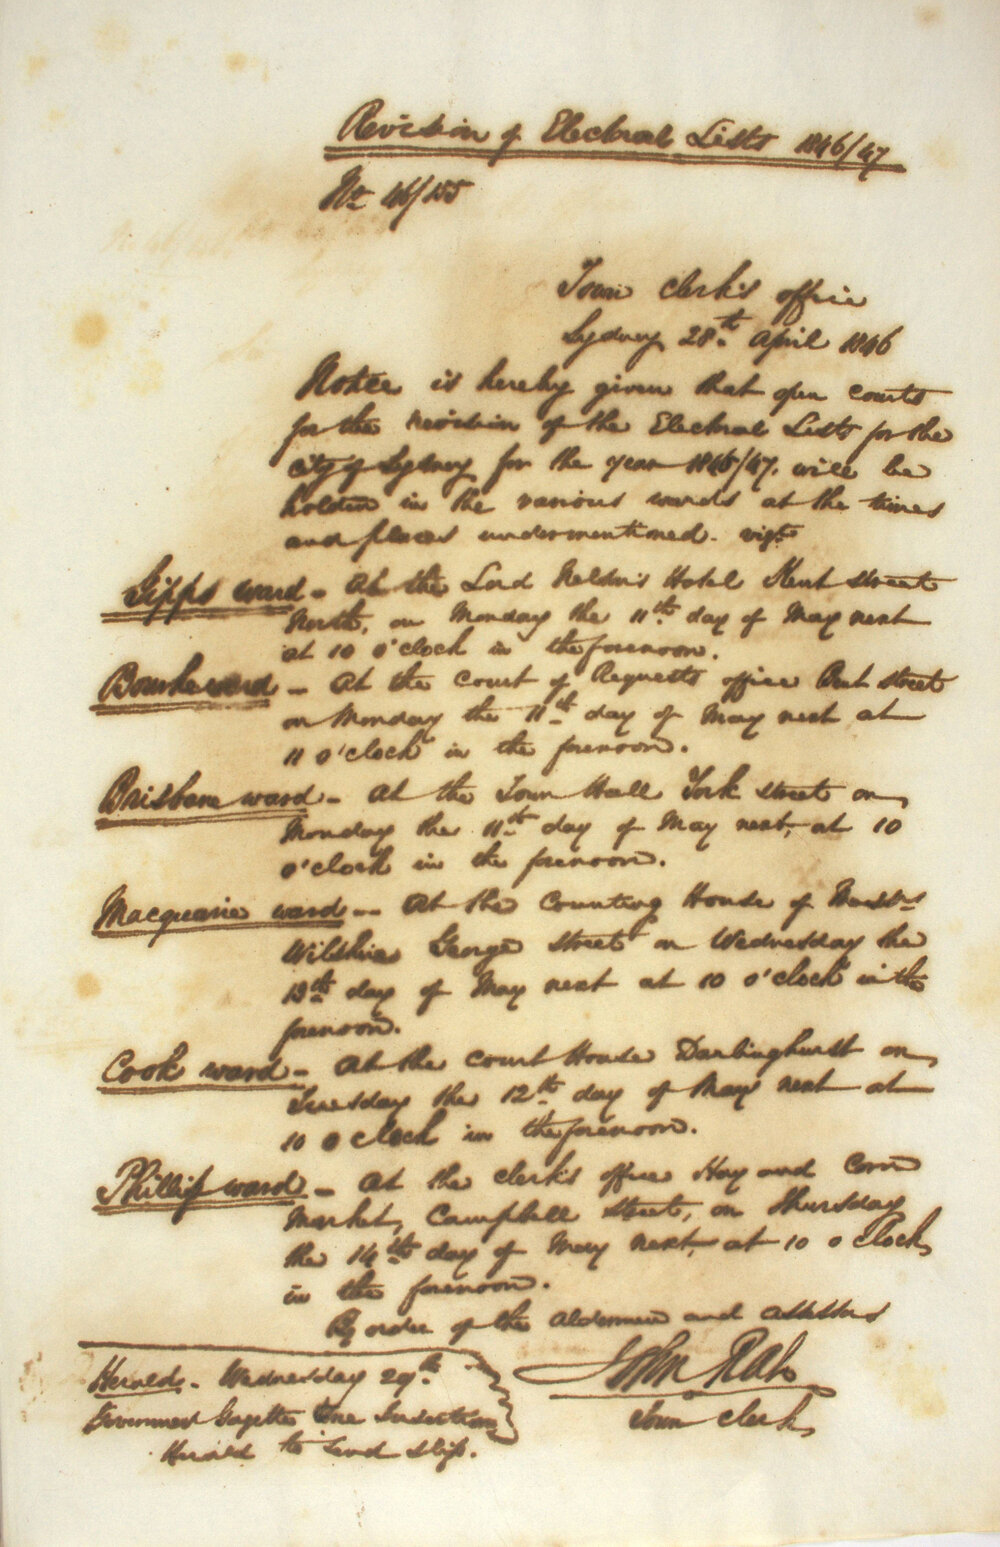 Revision of Electoral Lists 1846/47
No 46/155
Town Clerk's office
Sydney 28th April 1846
Notice is hereby given that open courts
for the revision of the Electoral Lists for the
City of Sydney for the year 1846/47. will be
holden in the various wards at the times
and places undermentioned. vizt
Gipps ward - At the Lord Nelson's Hotel Kent Street
North, on Monday the 11th day of May next
at 10 o'clock in the forenoon.
Bourke ward - At the Court of Requests office Pitt Street
on Monday the 11th day of May next at
11 o'clock in the forenoon.
Brisbane ward - At the Town Hall York Street on
Monday the 11th day of May next, at 10
o'clock in the forenoon.
Macquarie ward - At the Counting House of Messrs
Wilshire George Street on Wednesday the
13th day of May next at 10 o'clock in the
forenoon.
Cook ward - At the Court House Darlinghurst on
Tuesday the 12th day of May next at
10 o clock in the forenoon.
Phillip ward - At the Clerk's office Hay and Corn
Market, Campbell Street, on Thursday
the 14th day of May next, at 10 o clock
in the forenoon.
By order of the Aldermen and Assessors
John Rae
Town Clerk
Herald - Wednesday 29th
Government Gazette One Insertion
Herald to send slip.